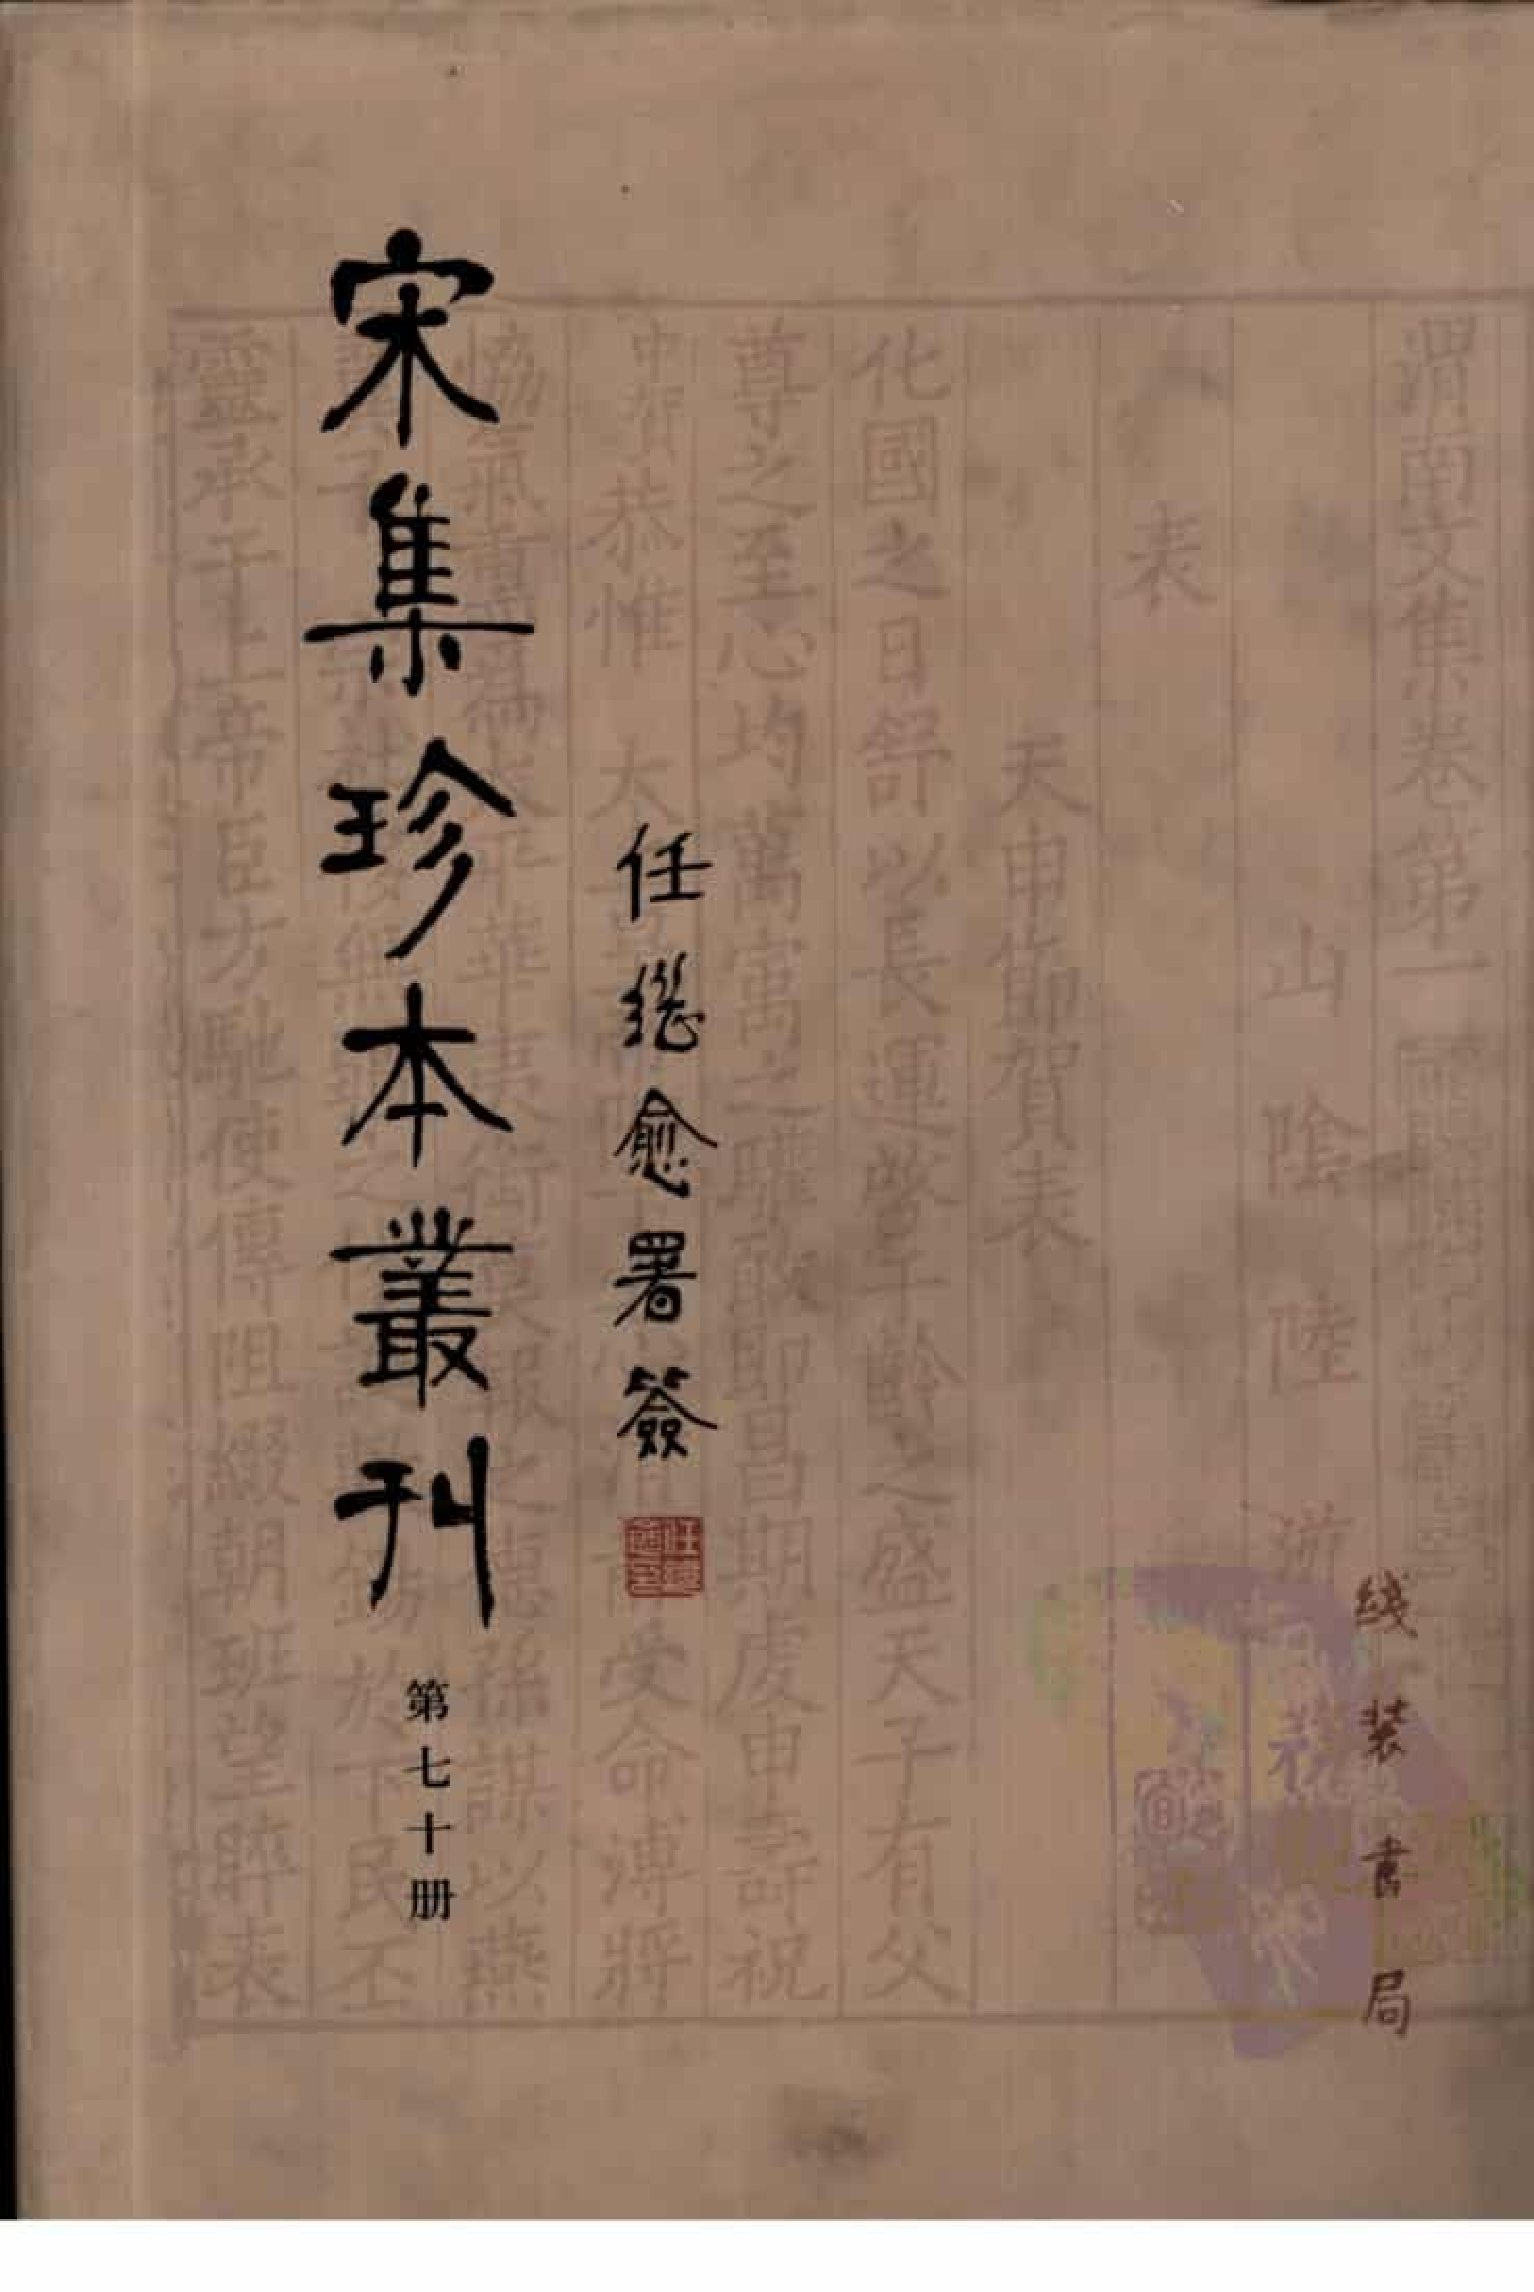 渭南文集卷第一
山陰陸游
表
天申節賀表
化國之日舒以長運啓千齡之盛天子有父
尊之至心均萬寓之驩敢即昌期虔申壽祝
中賀恭惟
受命溥將
孫謀以燕
於下民丕
靈承于上帝臣方馳使傳阻綴朝班望睟表
宋集珍本叢刊
第七十册
任继愈署簽
綫装書局